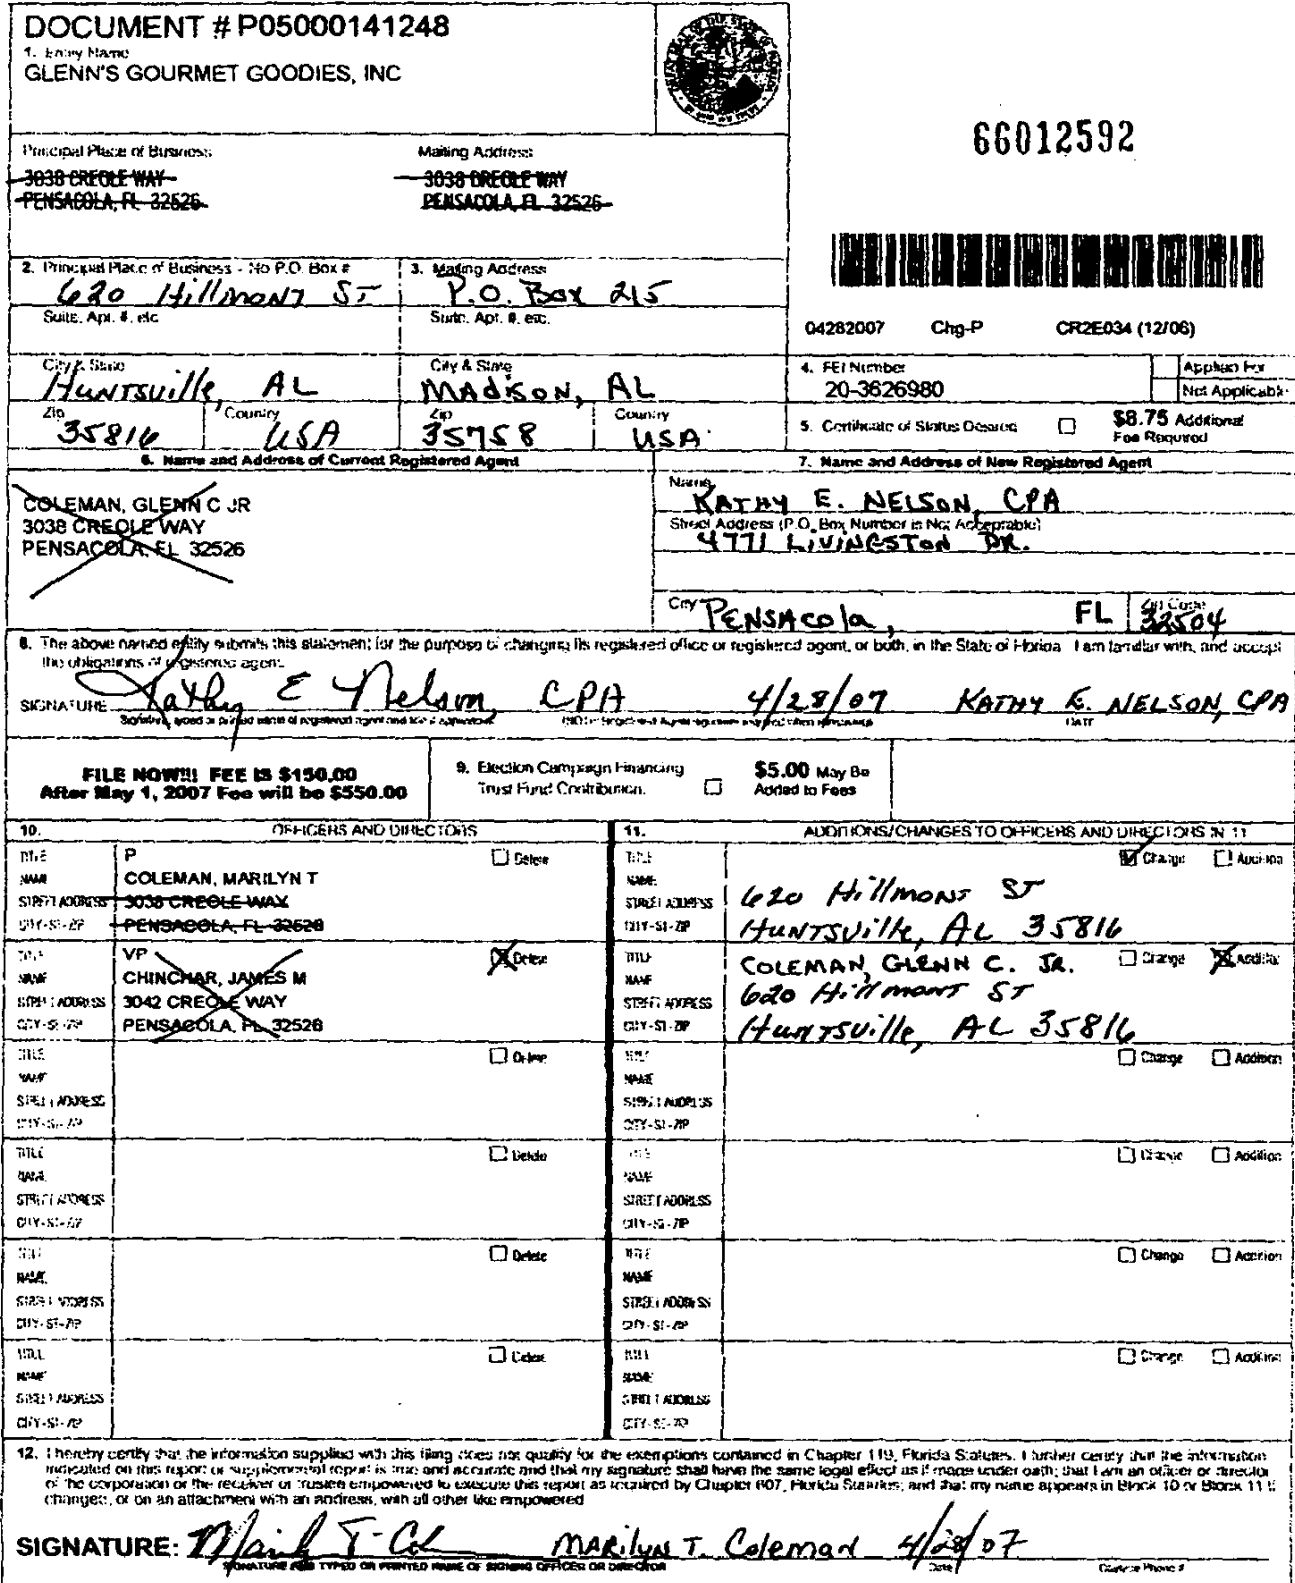 DOCUMENT # P05000141248
1. Entity Name
GLENN'S GOURMET GOODIES, INC
66012592
Principal Place of Business
3038 CREOLE WAY
PENSACOLA, FL 32526
Mailing Address
3038 CREOLE WAY
PENSACOLA, FL 32526
2. Principal Place of Business - No P.O. Box #
620 Hillmont ST
Suite, Apt. #, etc.
City & State
Huntsville, AL
Zip
35816
Country
USA
3. Mailing Address
P.O. Box 215
Suite, Apt. #, etc.
City & State
Madison, AL
Zip
35758
Country
USA
04282007 Chg-P CR2E034 (12/06)
4. FEI Number
20-3626980
Applied For
Not Applicable
5. Certificate of Status Desired
$8.75 Additional
Fee Required
6. Name and Address of Current Registered Agent
COLEMAN, GLENN C JR
3038 CREOLE WAY
PENSACOLA, FL 32526
7. Name and Address of New Registered Agent
Name
KATHY E. NELSON, CPA
Street Address (P.O. Box Number is Not Acceptable)
4771 LIVINGSTON DR.
City
PENSACOLA,
FL
Zip Code
32504
8. The above named entity submits this statement for the purpose of changing its registered office or registered agent, or both, in the State of Florida. I am familiar with, and accept
the obligations of registered agent.
SIGNATURE Kathy E Nelson, CPA 4/28/07 KATHY E. NELSON, CPA
Signature, typed or printed name of registered agent and title if applicable.
DATE
FILE NOW!!! FEE IS $150.00
After May 1, 2007 Fee will be $550.00
9. Election Campaign Financing
Trust Fund Contribution.
$5.00 May Be
Added to Fees
10. OFFICERS AND DIRECTORS
TITLE P Delete
NAME COLEMAN, MARILYN T
STREET ADDRESS 3038 CREOLE WAY
CITY-ST-ZIP PENSACOLA, FL 32526
TITLE VP Delete
NAME CHINCHAR, JAMES M
STREET ADDRESS 3042 CREOLE WAY
CITY-ST-ZIP PENSACOLA, FL 32526
TITLE Delete
NAME
STREET ADDRESS
CITY-ST-ZIP
TITLE Delete
NAME
STREET ADDRESS
CITY-ST-ZIP
TITLE Delete
NAME
STREET ADDRESS
CITY-ST-ZIP
TITLE Delete
NAME
STREET ADDRESS
CITY-ST-ZIP
11. ADDITIONS/CHANGES TO OFFICERS AND DIRECTORS IN 11
TITLE Change Addition
NAME
STREET ADDRESS 620 Hillmont ST
CITY-ST-ZIP Huntsville, AL 35816
TITLE COLEMAN, GLENN C. JR. Change Addition
NAME 620 Hillmont ST
STREET ADDRESS
CITY-ST-ZIP Huntsville, AL 35816
TITLE Change Addition
NAME
STREET ADDRESS
CITY-ST-ZIP
TITLE Change Addition
NAME
STREET ADDRESS
CITY-ST-ZIP
TITLE Change Addition
NAME
STREET ADDRESS
CITY-ST-ZIP
TITLE Change Addition
NAME
STREET ADDRESS
CITY-ST-ZIP
12. I hereby certify that the information supplied with this filing does not qualify for the exemptions contained in Chapter 119, Florida Statutes. I further certify that the information
indicated on this report or supplemental report is true and accurate and that my signature shall have the same legal effect as if made under oath; that I am an officer or director
of the corporation or the receiver or trustee empowered to execute this report as required by Chapter 607, Florida Statutes; and that my name appears in Block 10 or Block 11 if
changed, or on an attachment with an address, with all other like empowered.
SIGNATURE: Marilyn T. Coleman 4/28/07
SIGNATURE AND TYPED OR PRINTED NAME OF SIGNING OFFICER OR DIRECTOR
Date
Daytime Phone #